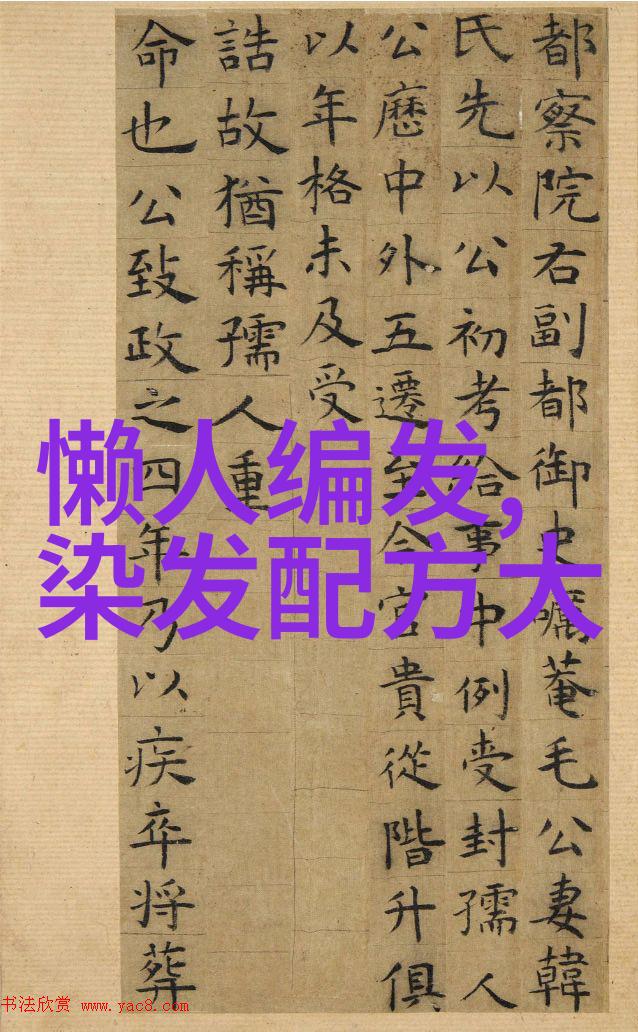 都察院右副都御史礪菴毛公妻韓
氏先以公初考給事中例受封孺人
公歷中外五遷至今官貴從階升俱
以年格未及受
誥故猶稱孺人重
命也公致政之四年乃以疾卒将葬
懒人编发,
染发配方大
书法欣赏 www.yac8.com